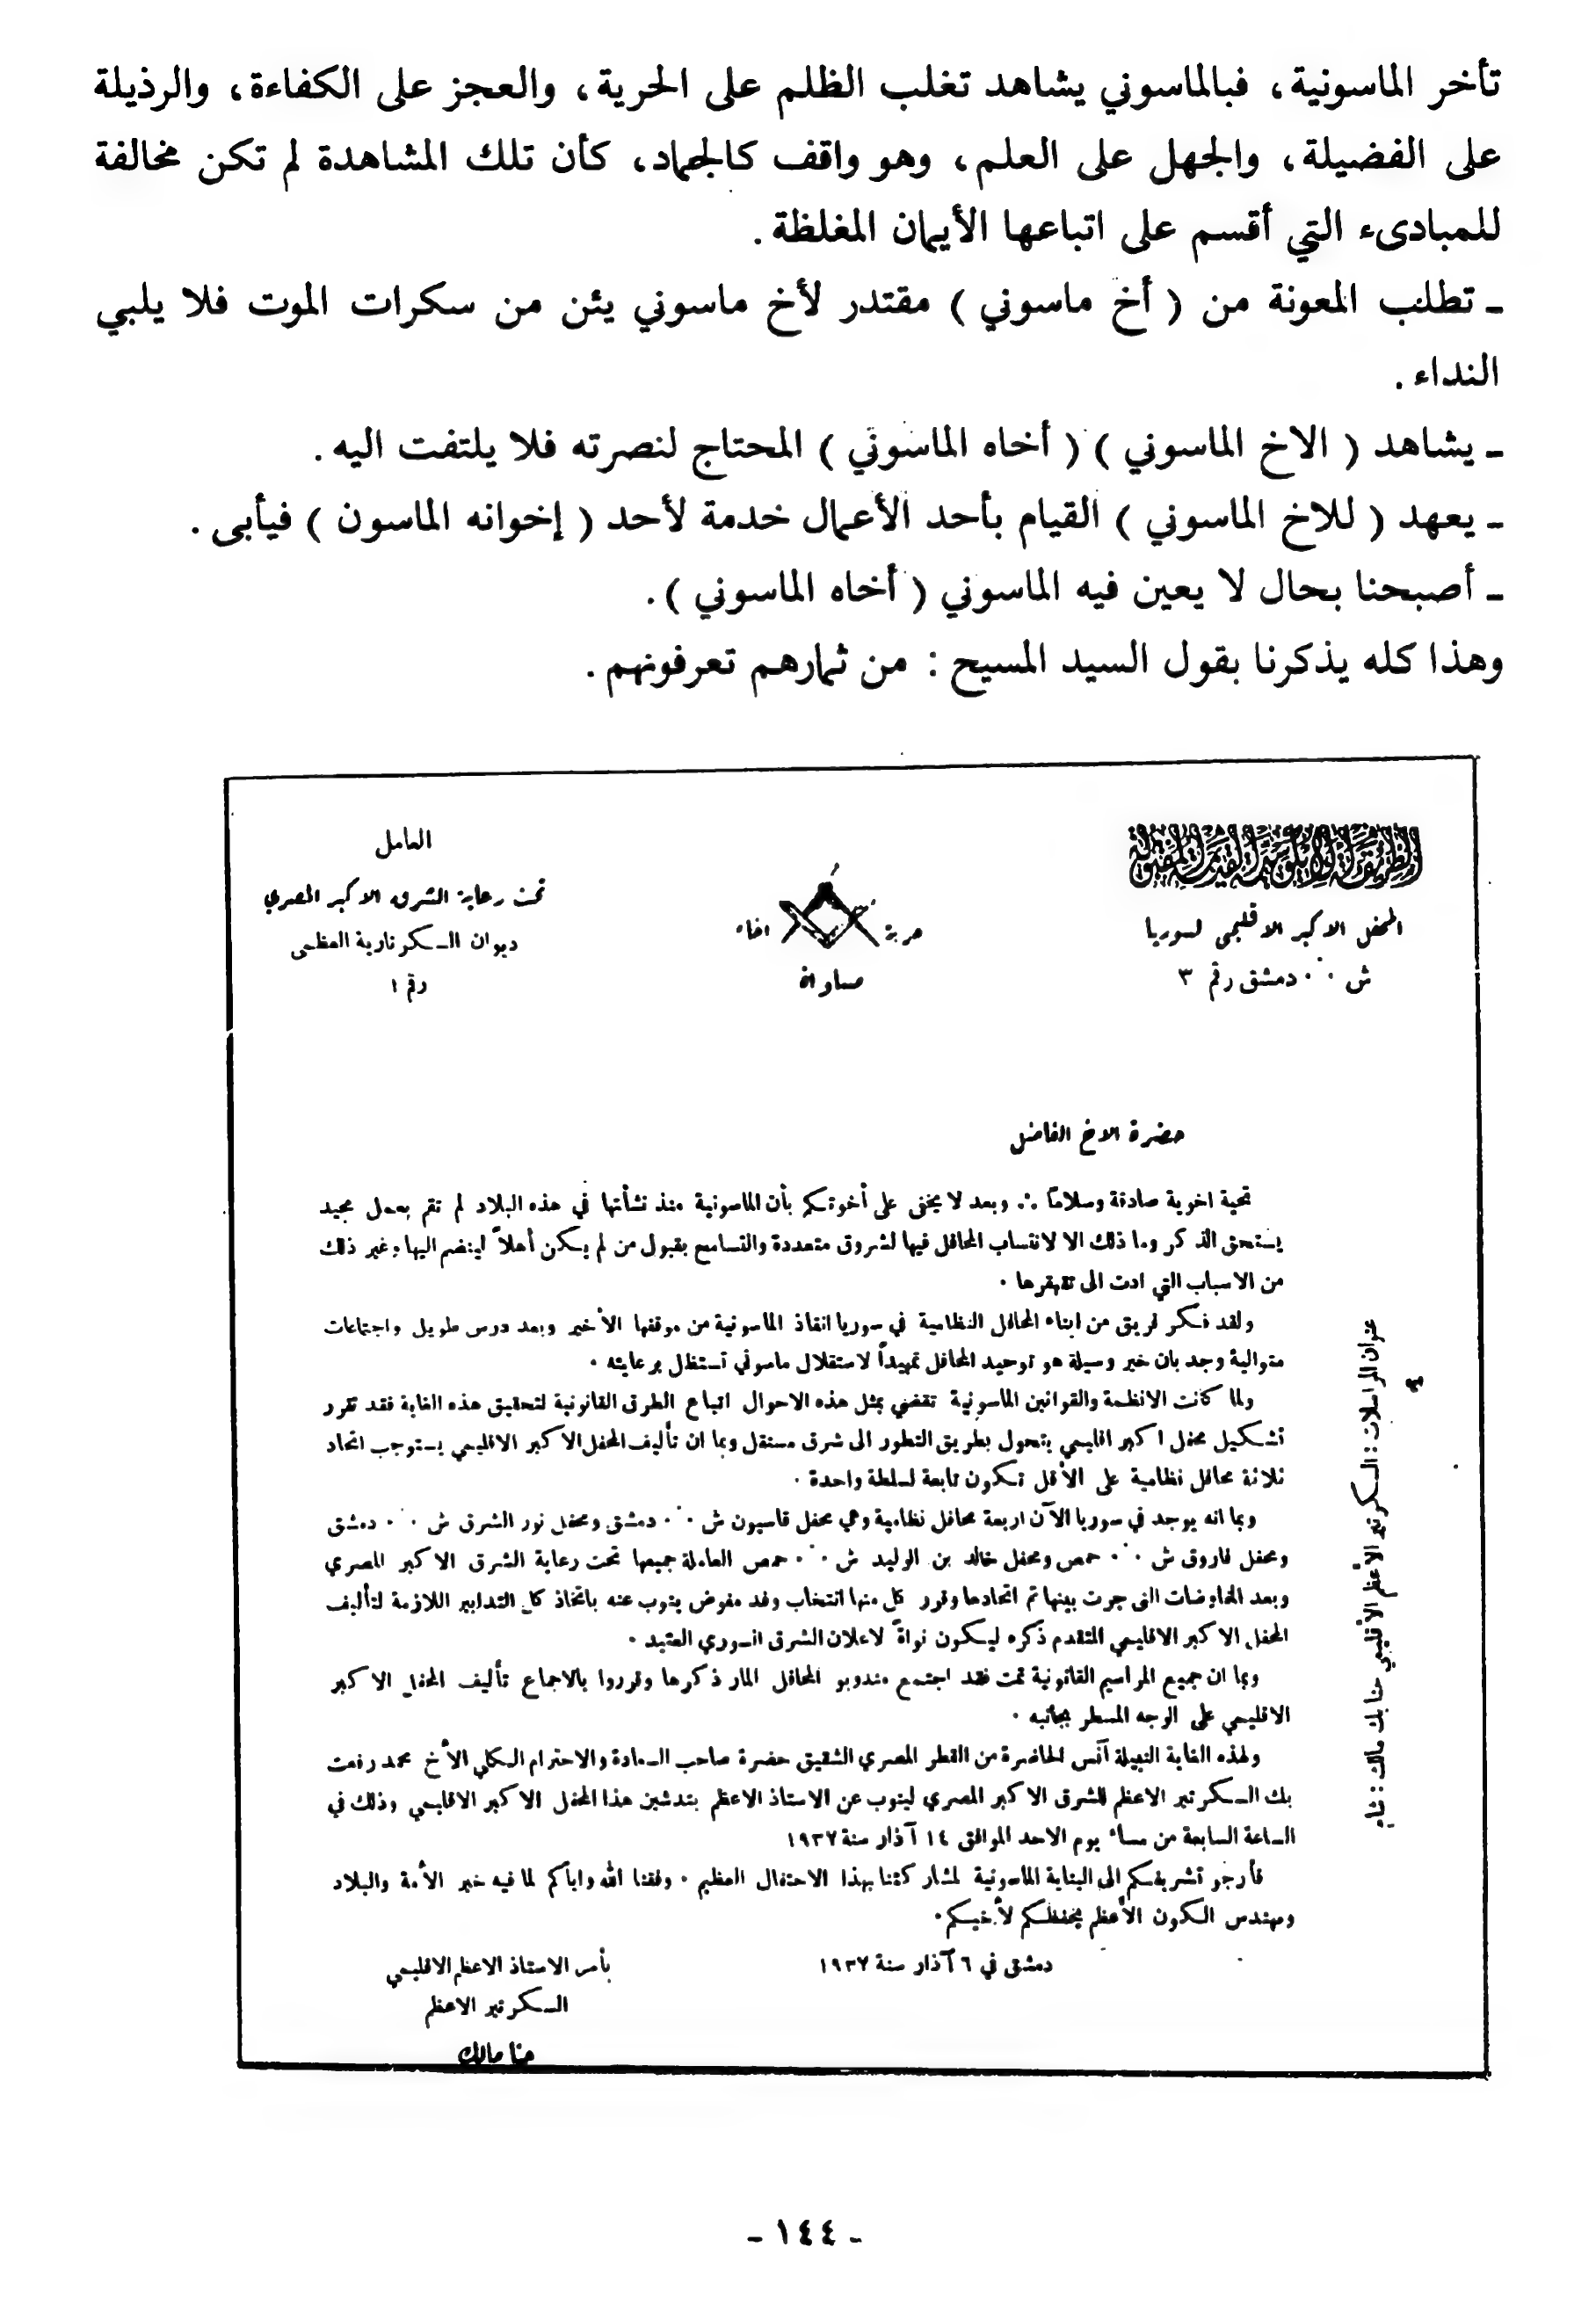 تأخر الماسونية، فبالماسوني يشاهد تغلب الظلم على الحرية، والعجز على الكفاءة، والرذيلة
على الفضيلة، والجهل على العلم، وهو واقف كالجماد، كأن تلك المشاهدة لم تكن مخالفة
للمبادىء التي أقسم على اتباعها الأيمان المغلظة.
ـ تطلب المعونة من ( أخ ماسوني ) مقتدر لأخ ماسوني يئن من سكرات الموت فلا يلبي
النداء.
ـ يشاهد ( الاخ الماسوني ) ( أخاه الماسوني ) المحتاج لنصرته فلا يلتفت اليه.
ـ يعهد ( للاخ الماسوني ) القيام بأحد الأعمال خدمة لأحد ( إخوانه الماسون ) فيأبى.
ـ أصبحنا بحال لا يعين فيه الماسوني ( أخاه الماسوني ).
وهذا كله يذكرنا بقول السيد المسيح : من ثمارهم تعرفونهم.
المحفل الاكبر الاقليمي لسوريا
ش ∴ دمشق رقم ٣
حرية اخاء
مساواة
العامل
تحت رعاية الشرق الاكبر المصري
ديوان السكرتارية العظمى
رقم ١
حضرة الاخ الفاضل
تحية اخوية صادقة وسلاماً ∴ وبعد لا يخفى على أخوتكم بأن الماسونية منذ نشأتها في هذه البلاد لم تقم بعمل مجيد
يستحق الذكر وما ذلك الا لانتساب المحافل فيها لشروق متعددة والتسامح بقبول من لم يكن أهلاً لينضم اليها وغير ذلك
من الاسباب التي ادت الى تقهقرها ٠
ولقد فكر فريق من ابناء المحافل النظامية في سوريا انقاذ الماسونية من موقفها الأخير وبعد درس طويل واجتماعات
متوالية وجد بان خير وسيلة هو توحيد المحافل تمهيداً لاستقلال ماسوني تستظل برعايته ٠
ولما كانت الانظمة والقوانين الماسونية تقضي بمثل هذه الاحوال اتباع الطرق القانونية لتحقيق هذه الغاية فقد تقرر
تشكيل محفل اكبر اقليمي يتحول بطريق التطور الى شرق مستقل وبما ان تأليف المحفل الاكبر الاقليمي يستوجب اتحاد
ثلاثة محافل نظامية على الأقل تكون تابعة لسلطة واحدة ٠
وبما انه يوجد في سوريا الآن اربعة محافل نظامية وهي محفل قاسيون ش ∴ دمشق ومحفل نور الشرق ش ∴ دمشق
ومحفل فاروق ش ∴ حمص ومحفل خالد بن الوليد ش ∴ حمص العاملة جميعها تحت رعاية الشرق الاكبر المصري
وبعد المخاوضات التي جرت بينها تم اتحادها وقرر كل منها انتخاب وفد مفوض ينوب عنه باتخاذ كل التدابير اللازمة لتأليف
المحفل الاكبر الاقليمي المتقدم ذكره ليكون نواةً لاعلان الشرق السوري العتيد ٠
وبما ان جميع المراسيم القانونية تمت فقد اجتمع مندوبو المحافل المار ذكرها وقرروا بالاجماع تأليف المحفل الاكبر
الاقليمي على الوجه المسطر بجانبه ٠
ولهذه الغاية النبيلة آنس الحاضرة من القطر المصري الشقيق حضرة صاحب السعادة والاحترام الكلي الأخ محمد رفعت
بك السكرتير الاعظم للشرق الاكبر المصري لينوب عن الاستاذ الاعظم بتدشين هذا المحفل الاكبر الاقليمي وذلك في
الساعة السابعة من مساء يوم الاحد الموافق ١٤ آذار سنة ١٩٣٧
فأرجو تشريفكم الى البناية الماسونية لمشاركتنا بهذا الاحتفال العظيم ٠ وفقنا الله واياكم لما فيه خير الأمة والبلاد
ومهندس الكون الأعظم يحفظكم لأخيكم ٠
دمشق في ٦ آذار سنة ١٩٣٧
بأمر الاستاذ الاعظم الاقليمي
السكرتير الاعظم
حنا مالك
عنوان المراسلات : السكرتير الأعظم الأقليمي حنا بك مالك :
- ١٤٤ -